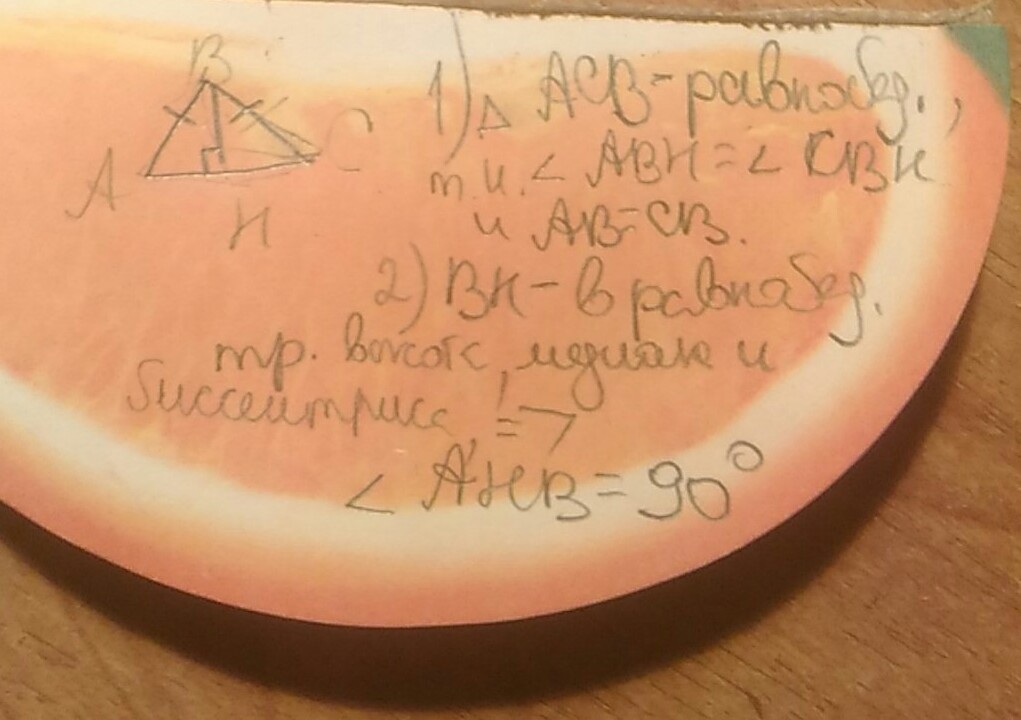 B
A
C
H
1) Δ ACB - равнобед.,
т.к. < ABH = < CBH
и AB=CB.
2) BH - в равнобед.
тр. высота, медиана и
биссектриса, =>
< AHB = 90°